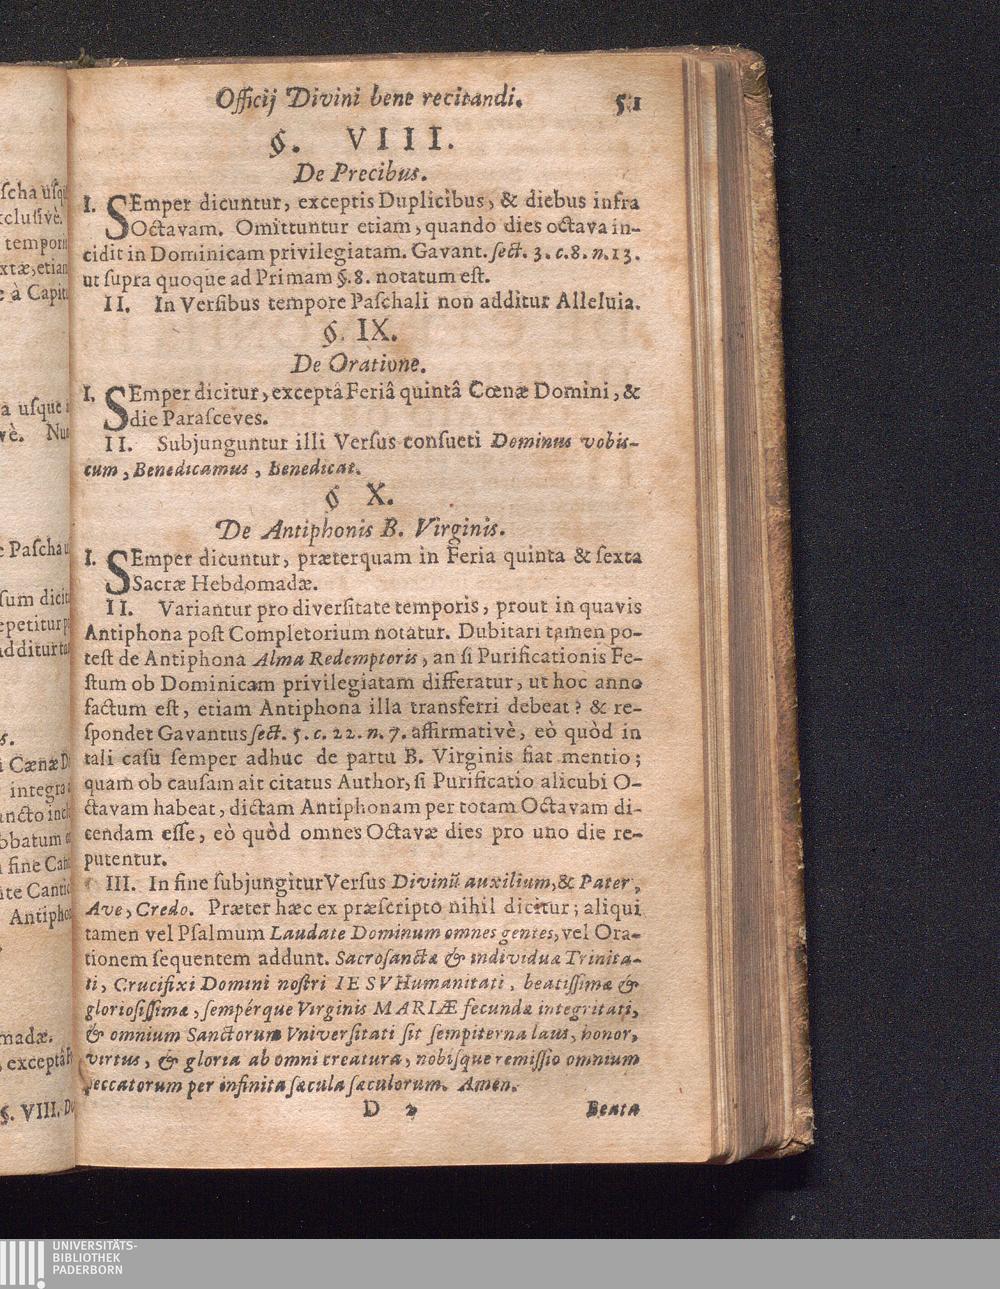 Officij Divini bene recitandi. 51
§. VIII.
De Precibus.
I. SEmper dicuntur, exceptis Duplicibus, & diebus infra
Octavam. Omittuntur etiam, quando dies octava in-
cidit in Dominicam privilegiatam. Gavant. ſect. 3. c. 8. n. 13.
ut ſupra quoque ad Primam §. 8. notatum eſt.
II. In Verſibus tempore Paſchali non additur Alleluia.
§. IX.
De Oratione.
I. SEmper dicitur, exceptâ Feriâ quintâ Cœnæ Domini, &
die Paraſceves.
II. Subjunguntur illi Verſus conſueti Dominus vobis-
cum, Benedicamus, benedicat.
§ X.
De Antiphonis B. Virginis.
I. SEmper dicuntur, præterquam in Feria quinta & ſexta
Sacræ Hebdomadæ.
II. Variantur pro diverſitate temporis, prout in quavis
Antiphona poſt Completorium notatur. Dubitari tamen po-
teſt de Antiphona Alma Redemptoris, an ſi Purificationis Fe-
ſtum ob Dominicam privilegiatam differatur, ut hoc anno
factum eſt, etiam Antiphona illa transferri debeat? & re-
ſpondet Gavantus ſect. 5. c. 22. n. 7. affirmativè, eò quòd in
tali caſu ſemper adhuc de partu B. Virginis fiat mentio;
quam ob cauſam ait citatus Author, ſi Purificatio alicubi O-
ctavam habeat, dictam Antiphonam per totam Octavam di-
cendam eſſe, eò quòd omnes Octavæ dies pro uno die re-
putentur.
III. In fine ſubjungitur Verſus Divinū auxilium, & Pater,
Ave, Credo. Præter hæc ex præſcripto nihil dicitur; aliqui
tamen vel Pſalmum Laudate Dominum omnes gentes, vel Ora-
tionem ſequentem addunt. Sacroſanctæ & individuæ Trinita-
ti, Crucifixi Domini noſtri IESV Humanitati, beatiſſimæ &
glorioſiſſimæ, ſempérque Virginis MARIÆ fecundæ integritati,
& omnium Sanctorum Vniverſitati ſit ſempiterna laus, honor,
virtus, & gloria ab omni creatura, nobiſque remiſſio omnium
peccatorum per infinita ſæcula ſæculorum. Amen.
D 2 Beata
UNIVERSITÄTS-
BIBLIOTHEK
PADERBORN